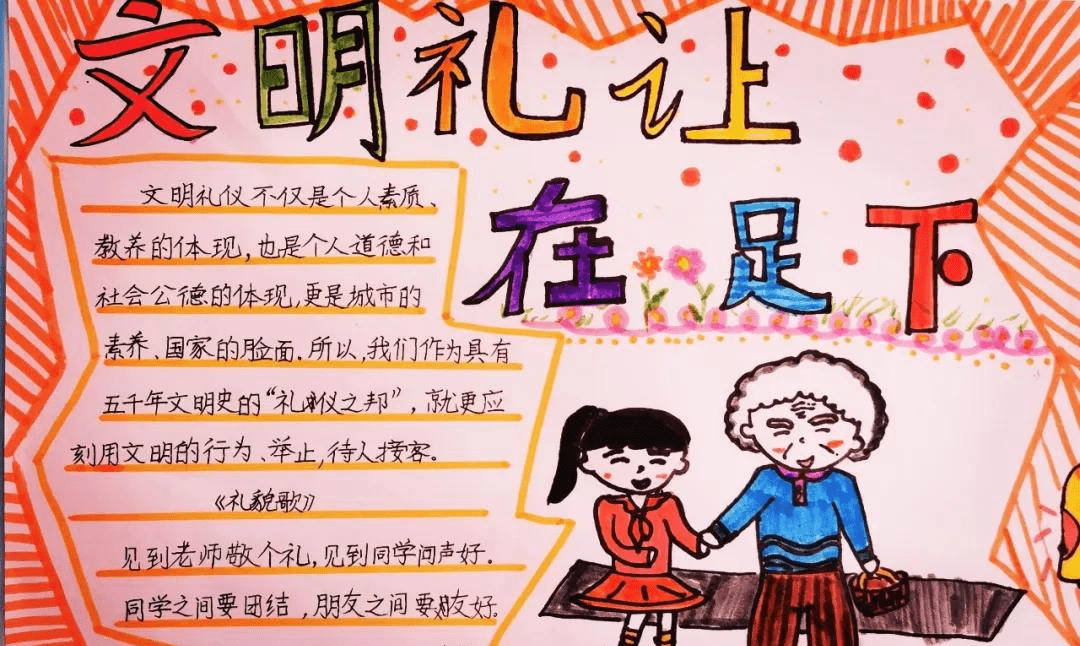 文明礼让
在足下
文明礼仪不仅是个人素质、
教养的体现,也是个人道德和
社会公德的体现,更是城市的
素养、国家的脸面.所以,我们作为具有
五千年文明史的“礼仪之邦”,就更应
刻用文明的行为、举止,待人接客。
《礼貌歌》
见到老师敬个礼,见到同学问声好.
同学之间要团结,朋友之间要友好.